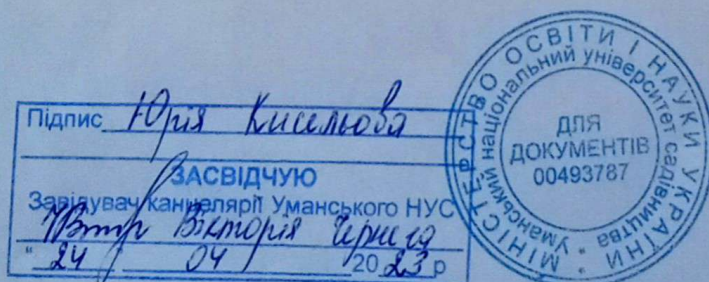 Підпис Юрія Кисельова
ЗАСВІДЧУЮ
Завідувач канцелярії Уманського НУС
Вікторія
" 24 " 04 20 23 р
МІНІСТЕРСТВО ОСВІТИ І НАУКИ УКРАЇНИ
Уманський національний університет садівництва
ДЛЯ
ДОКУМЕНТІВ
00493787